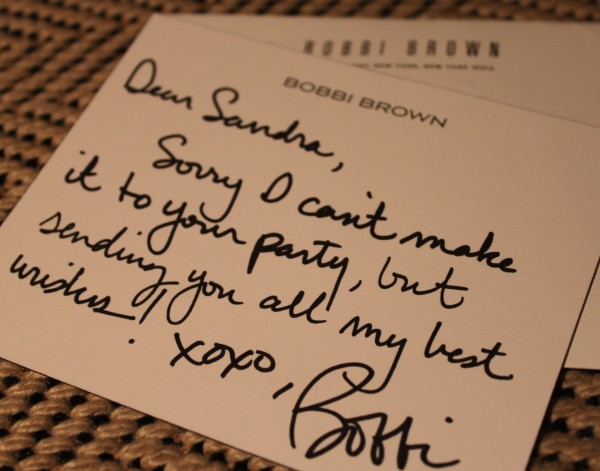 BOBBI BROWN
NEW YORK, NEW YORK
BOBBI BROWN
Dear Sandra,
Sorry I can't make
it to your party, but
sending you all my best
wishes!
xoxo,
Bobbi